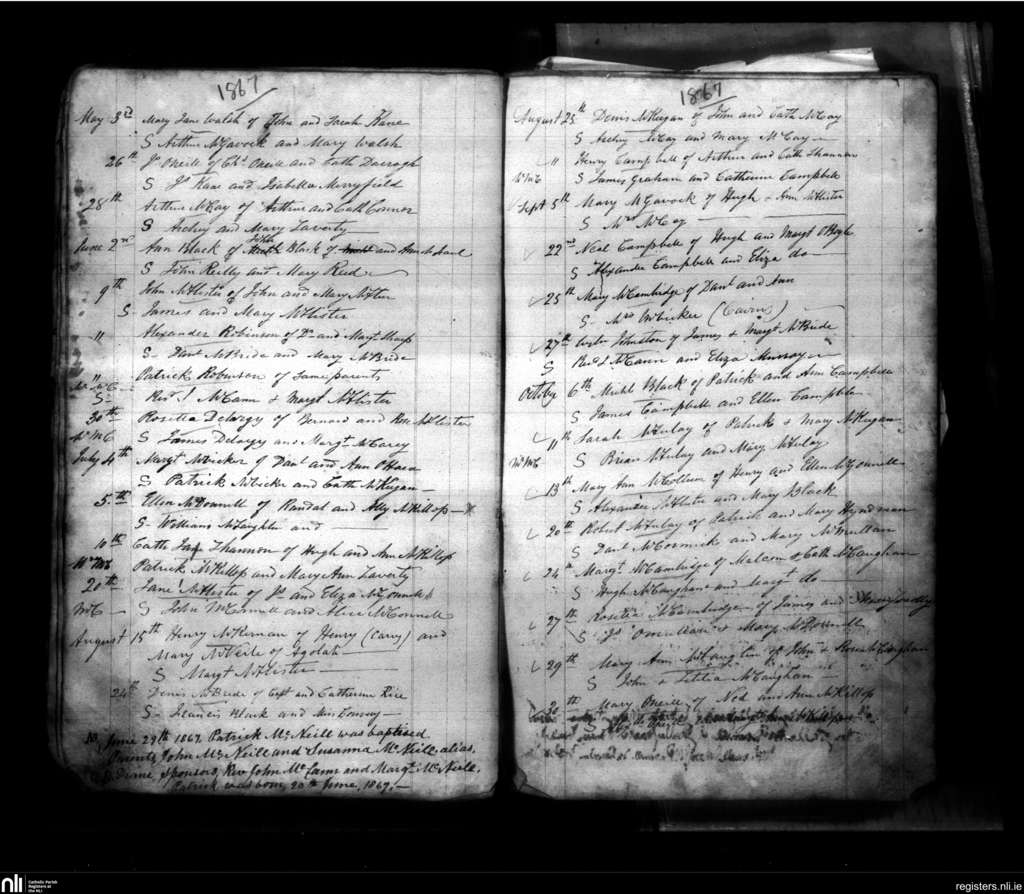 1867
May 3rd Mary Jane Walsh of John and Sarah Kane
S Arthur McGavock and Mary Walsh
26th Js Oneill of Chs Oneill and Cath Darragh
S Js Kane and Isabella Merryfield
28th Arthur McCay of Arthur and Cath Connor
S Archy and Mary Laverty
June 2nd Ann Black of John Black of and Ann
S John Reilly and Mary Reid
9th John McAlister of John and Mary
S James and Mary McAlister
11 Alexander Robinson of Dn and Margt Sharp
S Danl McBride and Mary McBride
11 Patrick Robinson of Same parents
Wm McC
S Revd J McCann & Margt McAlister
30th Rosetta Delargy of Bernard and Rose McAlister
Wm McC S James Delargy and Margt McCarey
July 4th Margt McVicker of Danl and Ann O'Hara
S Patrick McVicker and Cath McKeegan
5th Ellen McDonnell of Randal and Ally McKillop
S Williams McLaughlin and
10th Cath Jane Shannon of Hugh and Ann McKillop
Wm McC Patrick McKillop and Mary Ann Laverty
20th Jane McAlister of Js and Eliza McConnell
McC S John McConnell and Alice McConnell
August 15th Henry McKernan of Henry (Carey) and
Mary McNeile of Agolah
S Margt McAlister
24th Denis McBride of Capt and Catherine Rice
S Francis Black and Miss Conway
June 29th 1867. Patrick McNeill was baptised
Parents, John McNeill and Susanna McNeill, alias,
Sponsors, Rev John McCann and Margt McNeill,
Patrick was born, 20th June, 1867.
1867
August 25th Denis McKeegan of John and Cath McCay
S Archy McCay and Mary McCay
11 Henry Campbell of Arthur and Cath Shannon
Wm McC S James Graham and Catherine Campbell
Sept 5th Mary McGavock of Hugh & Ann McAlister
S Mrs McCoy
22nd Neal Campbell of Hugh and Margt O'Boyle
S Alexander Campbell and Eliza do
25th Mary McCambridge of Danl and Ann
S Mrs McVicker (Cavin)
27th Johnston of James & Margt McBride
S Revd J McCann and Eliza Murray
Octobr 6th Michl Black of Patrick and Ann Campbell
S James Campbell and Ellen Campble
11th Sarah McAulay of Patrick & Mary McKeegan
Wm McC S Brian McAulay and Mary McAulay
13th Mary Ann McCollum of Henry and Ellen McConnell
S Alexander McAlister and Mary Black
20th Robert McAulay of Patrick and Mary Hyndman
S Danl McCormick and Mary McMullan
24th Margt McCambridge of Malcom & Cath McCaughan
S Hugh McCaughan and Margt do
27th Rosetta McCambridge of James and
S Js and Mary McDonnell
29th Mary Ann McLaughlin of John & Rose McCaughan
S John & Letitia McCaughan
30th Mary Oneill of Ned and Ann McKillop
nli
Catholic Parish
Registers at
the NLI
registers.nli.ie